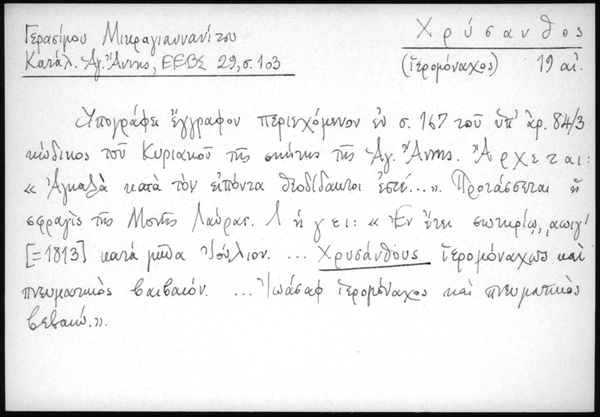 Γερασίμου Μικραγιαννανίτου
Χρύσανθος
Κατάλ. Ἁγ. Ἄννης, ΕΕΒΣ 29, σ. 103
(ἱερομόναχος) 19 αἰ.
Ὑπογράφει ἔγγραφον περιεχόμενον ἐν σ. 167 τοῦ ὑπ' ἀρ. 84/3
κώδικος τοῦ Κυριακοῦ τῆς σκήτης τῆς Ἁγ. Ἄννης. Ἄρχεται:
« Ἀγκαλὰ κατὰ τὸν εἰπόντα θεοδίδακτοι ἐστέ...». Προτάσσεται ἡ
σφραγὶς τῆς Μονῆς Λαύρας. Λήγει: « Ἐν ἔτει σωτηρίῳ, ͵αωιγ'
[=1813] κατὰ μῆνα Ἰούλιον. ... Χρυσάνθους ἱερομόναχως καὶ
πνευματικὸς βαιβαιόν. ... Ἰωάσαφ ἱερομόναχος καὶ πνευματικὸς
βεβαιῶ.».